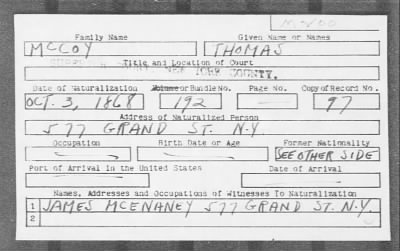 M-200
Family Name Given Name or Names
MCCOY THOMAS
Title and Location of Court
NEW YORK COUNTY.
Date of Naturalization Volume or Bundle No. Page No. Copy of Record No.
OCT. 3, 1868 192 — 97
Address of Naturalized Person
577 GRAND ST. N.Y
Occupation Birth Date or Age Former Nationality
— — SEE OTHER SIDE
Port of Arrival in the United States Date of Arrival
— —
Names, Addresses and Occupations of Witnesses To Naturalization
1 JAMES MCENANEY 577 GRAND ST. N.Y.
2